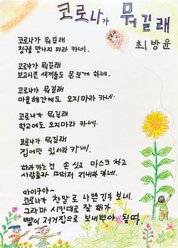 코로나가 뭐길래
최방윤
코로나가 뭐길래
친구를 만나지 마라 카네.
코로나가 뭐길래
보고시픈 새끼들도 못 보게 하네.
코로나가 뭐길래
마을회관에도 오지마라 카네.
코로나가 뭐길래
학교에도 오지마라 카네.
코로나가 뭐길래
집에만 있으라 카네.
하라카는건 손 씻고 마스크 하고
사람들과 멀리 지내라 카네.
아이구야~
코로나가 정말로 나쁜긴가 보네.
그라마 시킨대로 잘 해가
빨리 저거집으로 보내뿌야 될따.